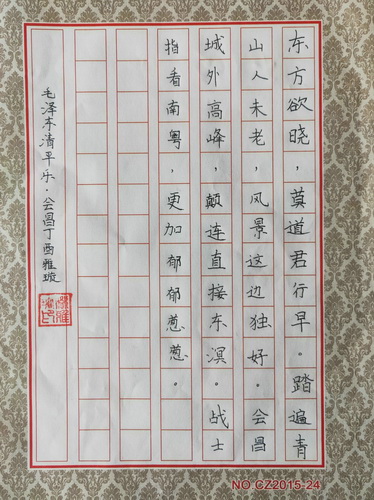 东方欲晓，莫道君行早。踏遍青
山人未老，风景这边独好。会昌
城外高峰，颠连直接东溟。战士
指看南粤，更加郁郁葱葱。
毛泽东清平乐·会昌丁酉雅璇
NO.CZ2015-24